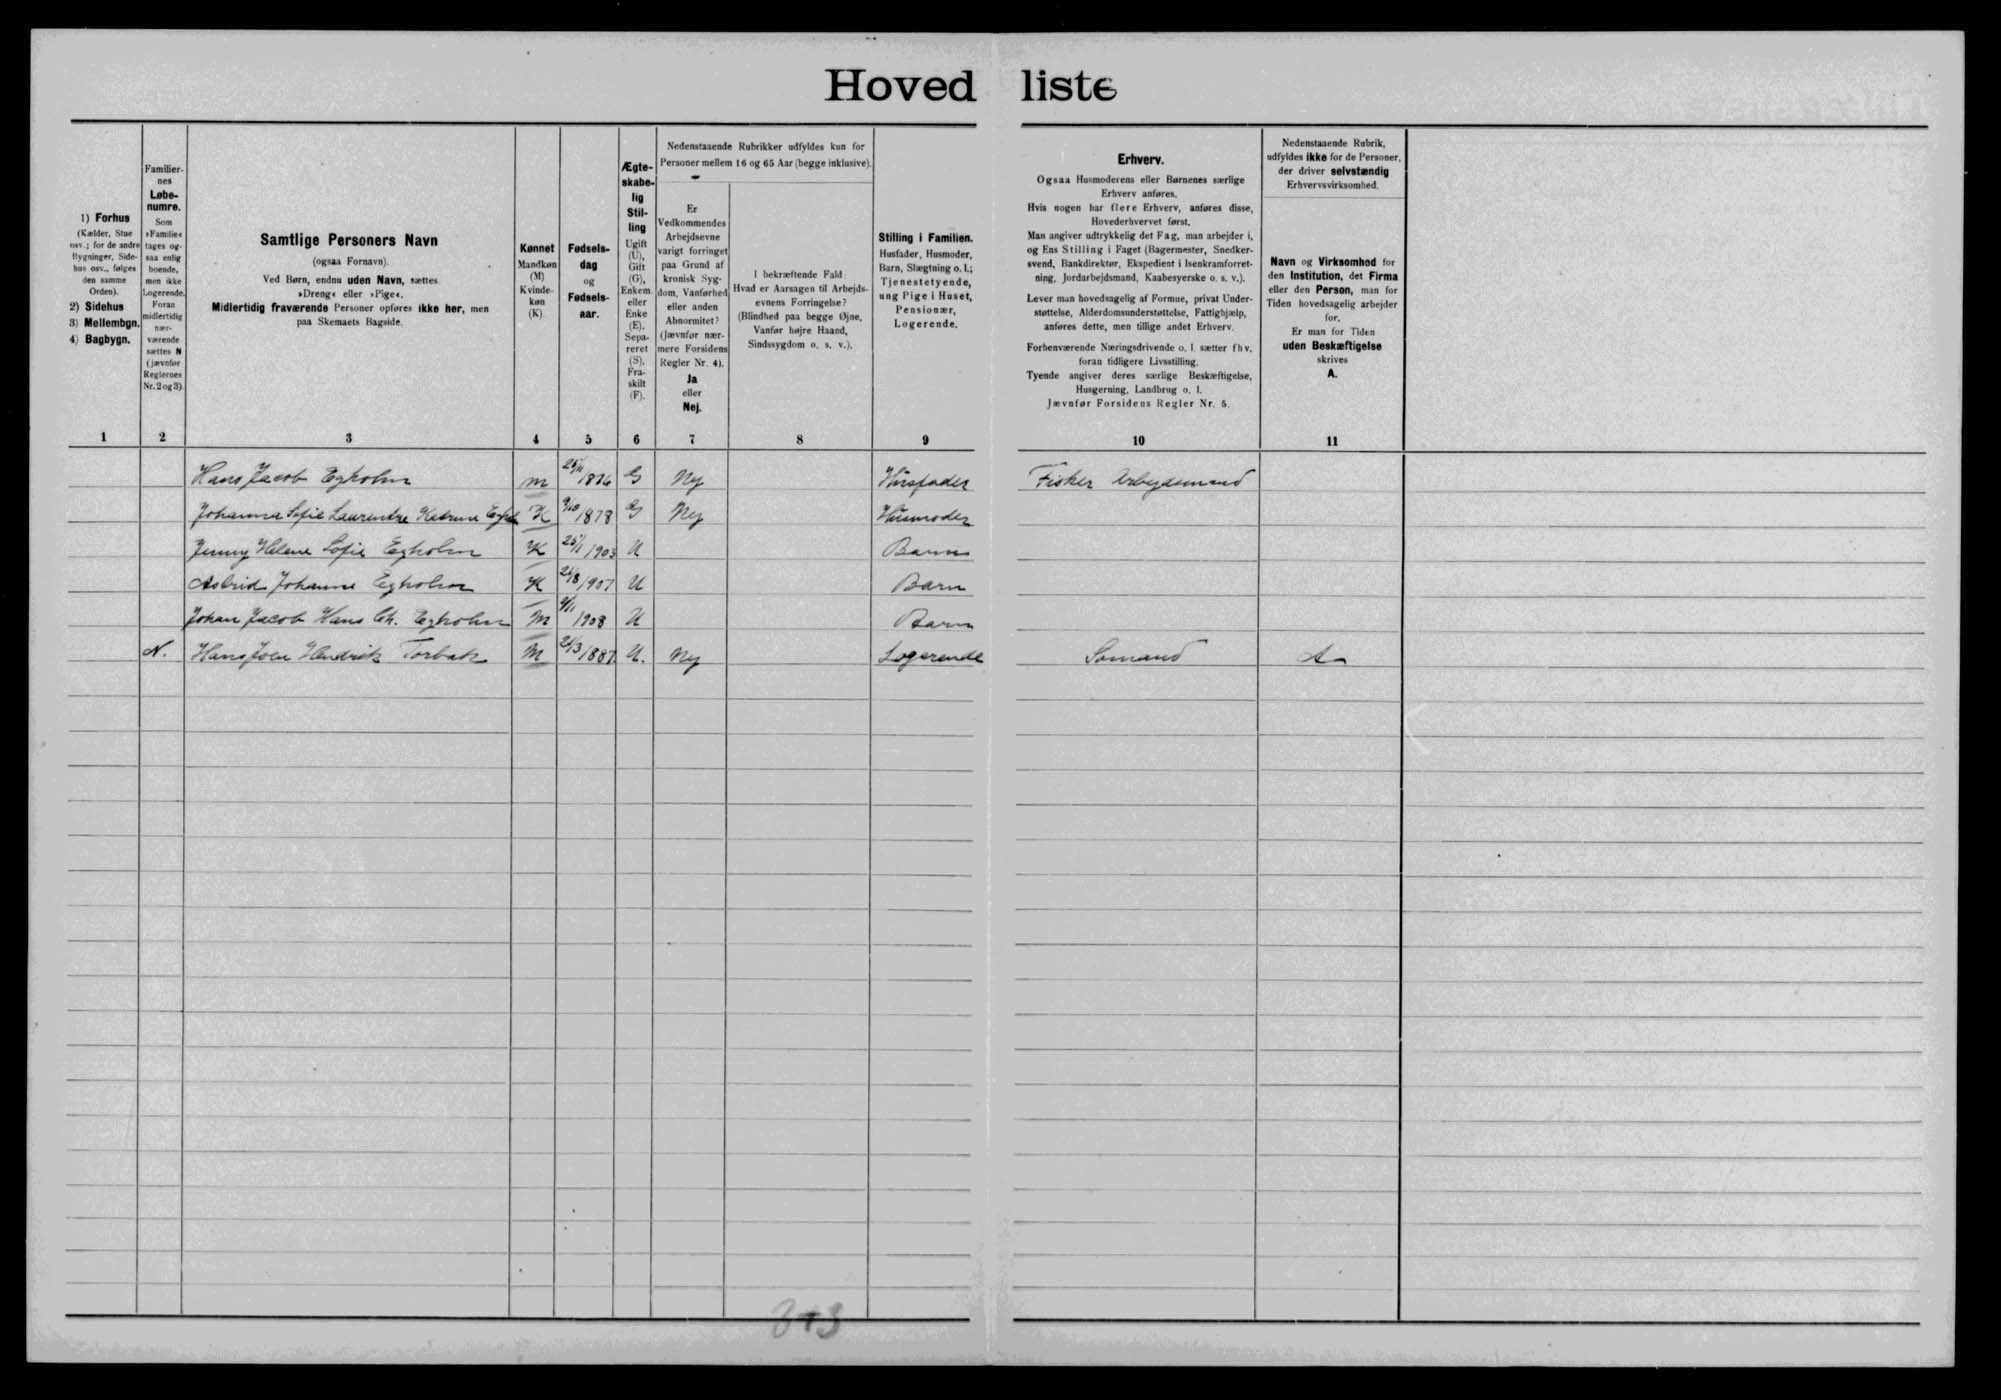 Hovedliste
1) Forhus
(Kælder, Stue
osv.; for de andre
Bygninger, Side-
hus osv., følges
den samme
Orden).
2) Sidehus
3) Mellembgn.
4) Bagbygn.
Familier-
nes
Løbe-
numre.
Som
»Familie«
tages og-
saa enlig
boende,
men ikke
Logerende.
Foran
midlertidig
nær-
værende
sættes N
(jævnfør
Reglernes
Nr. 2 og 3).
Samtlige Personers Navn
(ogsaa Fornavn).
Ved Børn, endnu uden Navn, sættes
»Dreng« eller »Pige«.
Midlertidig fraværende Personer opføres ikke her, men
paa Skemaets Bagside.
Kønnet
Mandkøn
(M)
Kvinde-
køn
(K).
Fødsels-
dag
og
Fødsels-
aar.
Ægte-
skabe-
lig
Stil-
ling
Ugift
(U),
Gift
(G),
Enkem.
eller
Enke
(E),
Sepa-
reret
(S),
Fra-
skilt
(F).
Nedenstaaende Rubrikker udfyldes kun for
Personer mellem 16 og 65 Aar (begge inklusive).
Er
Vedkommendes
Arbejdsevne
varigt forringet
paa Grund af
kronisk Syg-
dom, Vanførhed
eller anden
Abnormitet?
(Jævnfør nær-
mere Forsidens
Regler Nr. 4).
Ja
eller
Nej.
I bekræftende Fald:
Hvad er Aarsagen til Arbejds-
evnens Forringelse?
(Blindhed paa begge Øjne,
Vanfør højre Haand,
Sindssygdom o. s. v.).
Stilling i Familien.
Husfader, Husmoder,
Barn, Slægtning o. l.;
Tjenestetyende,
ung Pige i Huset,
Pensionær,
Logerende.
Erhverv.
Ogsaa Husmoderens eller Børnenes særlige
Erhverv anføres.
Hvis nogen har flere Erhverv, anføres disse,
Hovederhvervet først.
Man angiver udtrykkelig det Fag, man arbejder i,
og Ens Stilling i Faget (Bagermester, Snedker-
svend, Bankdirektør, Ekspedient i Isenkramforret-
ning, Jordarbejdsmand, Kaabesyerske o. s. v.).
Lever man hovedsagelig af Formue, privat Under-
støttelse, Alderdomsunderstøttelse, Fattighjælp,
anføres dette, men tillige andet Erhverv.
Forhenværende Næringsdrivende o. l. sætter fhv.
foran tidligere Livsstilling.
Tyende angiver deres særlige Beskæftigelse,
Husgerning, Landbrug o. l.
Jævnfør Forsidens Regler Nr. 5.
Nedenstaaende Rubrik,
udfyldes ikke for de Personer,
der driver selvstændig
Erhvervsvirksomhed.
Navn og Virksomhed for
den Institution, det Firma
eller den Person, man for
Tiden hovedsagelig arbejder
for.
Er man for Tiden
uden Beskæftigelse
skrives
A.
1 2 3 4 5 6 7 8 9 10 11
Hans Jacob Egholm m 1876 G Nej Husfader Fisker Arbejdsmand
Johanna Sofie Laurentze Katrine K 9/10 1878 G Nej Husmoder
Jenny Helene Sofie Egholm K 25/1 1903 U Barn
Astrid Johanne Egholm K 21/8 1907 U Barn
Johan Jacob Hans Chr. Egholm M 1908 U Barn
N. Hans Joen Hendrik Torbak M 21/3 1887 U. Nej Logerende Sømand A